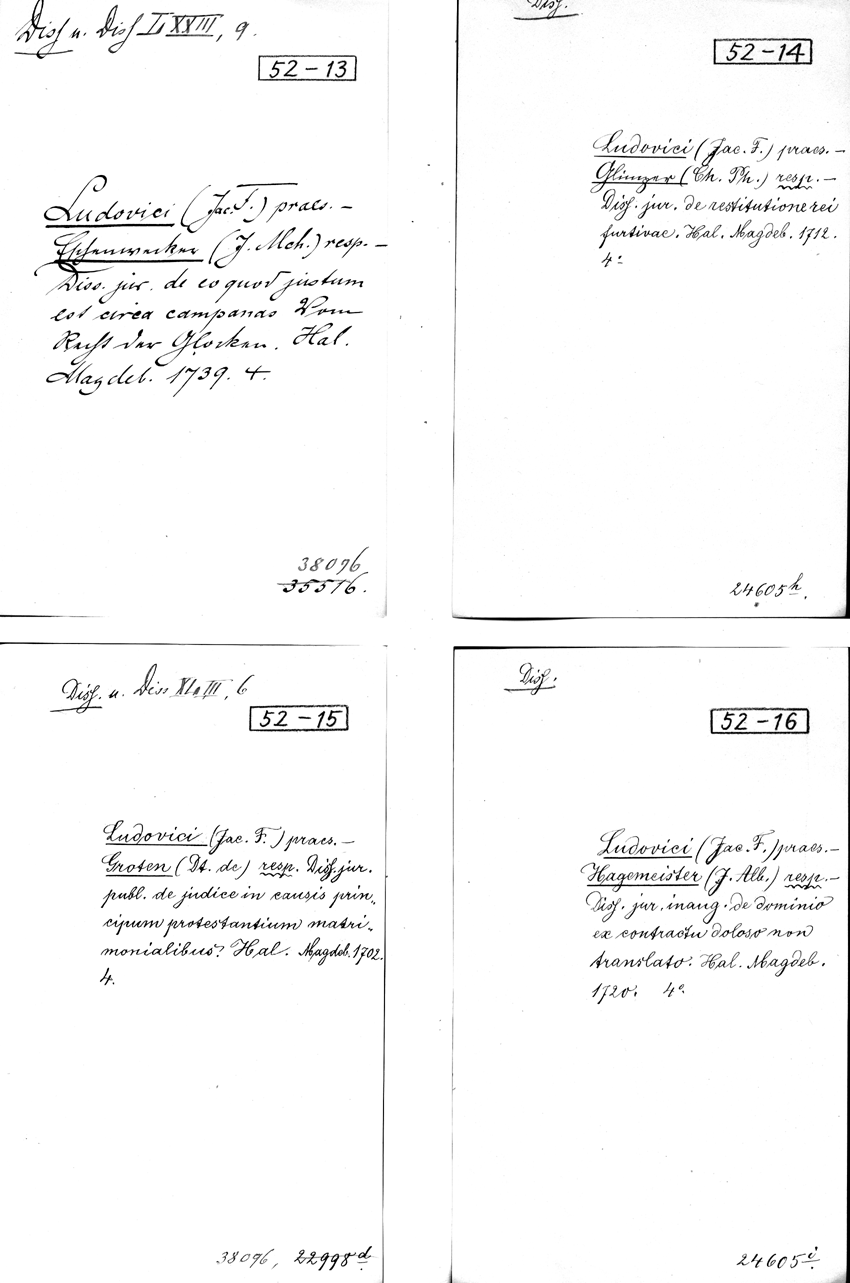 Diss u. Diss LXXIII, 9.
52-13
Ludovici (Jac. F.) praes. —
Eschenwecker (J. Mch.) resp. —
Diss. jur. de eo quod justum
est circa campanas Vom
Recht der Glocken. Hal.
Magdeb. 1739. 4.
38096
35516.
Diss.
52-14
Ludovici (Jac. F.) praes. —
Glimzer (Ch. Ph.) resp. —
Diss. jur. de restitutione rei
furtivae. Hal. Magdeb. 1712.
4°
24605h.
Diss. u. Diss , 6
52-15
Ludovici (Jac. F.) praes. —
Groten (Dt. de) resp. Diss. jur.
publ. de judice in causis prin-
cipum protestantium matri-
monialibus? Hal. Magdeb. 1702.
4.
38096, 22998d.
Diss.
52-16
Ludovici (Jac. F.) praes. —
Hagemeister (J. Alb.) resp. —
Diss. jur. inaug. de dominio
ex contractu doloso non
translato. Hal. Magdeb.
1720. 4°.
24605i.